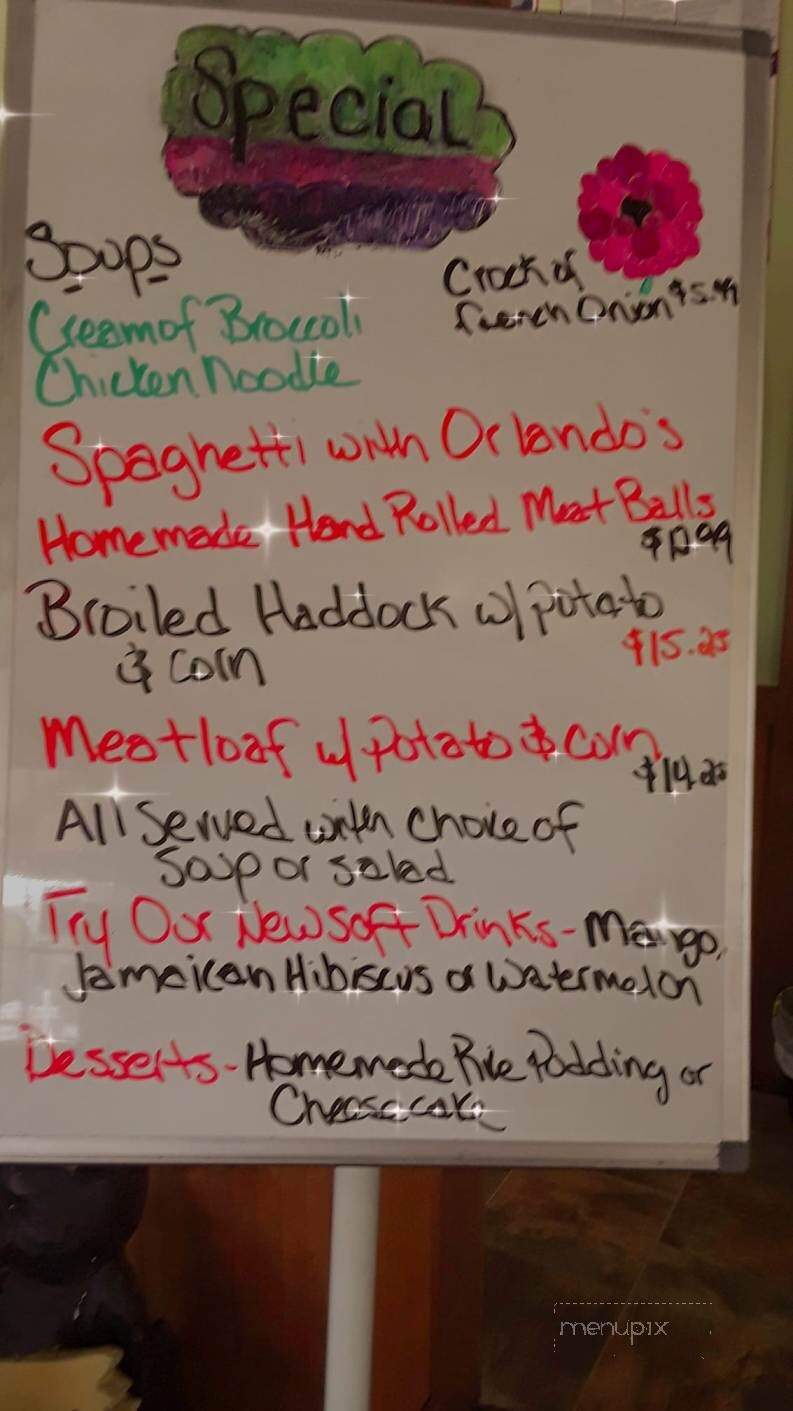 Special
Soups
Crock of
French Onion $5.99
Cream of Broccoli
Chicken Noodle
Spaghetti with Orlando's
Homemade Hand Rolled Meat Balls
Broiled Haddock w/ Potato
& Corn
$15.25
Meatloaf w/ Potato & Corn
$14.25
All Served with Choice of
Soup or Salad
Try Our New Soft Drinks - Mango,
Jamaican Hibiscus or Watermelon
Desserts - Homemade Rice Pudding or
Cheesecake
menupix